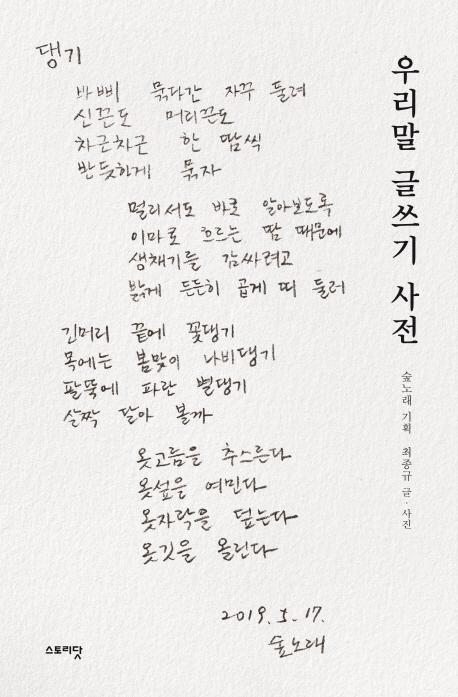 댕기
바삐 묶다간 자꾸 둘려
신끈도 머리끈도
차근차근 한 땀씩
반듯하게 묶자
멀리서도 바로 알아보도록
이마로 흐르는 땀 때문에
생채기를 감싸려고
밝게 든든히 곱게 띠 둘러
긴머리 끝에 꽃댕기
목에는 봄맞이 나비댕기
팔뚝에 파란 별댕기
살짝 달아 볼까
옷고름을 추스른다
옷섶을 여민다
옷자락을 덮는다
옷깃을 올린다
2019. 5. 17.
숲노래
우리말 글쓰기 사전
숲노래 기획 최종규 글·사진
스토리닷